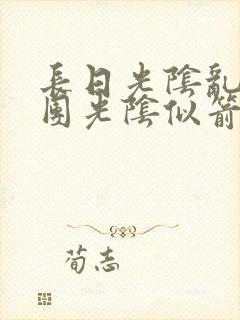 長日光陰亂
圍光陰似箭
荀志